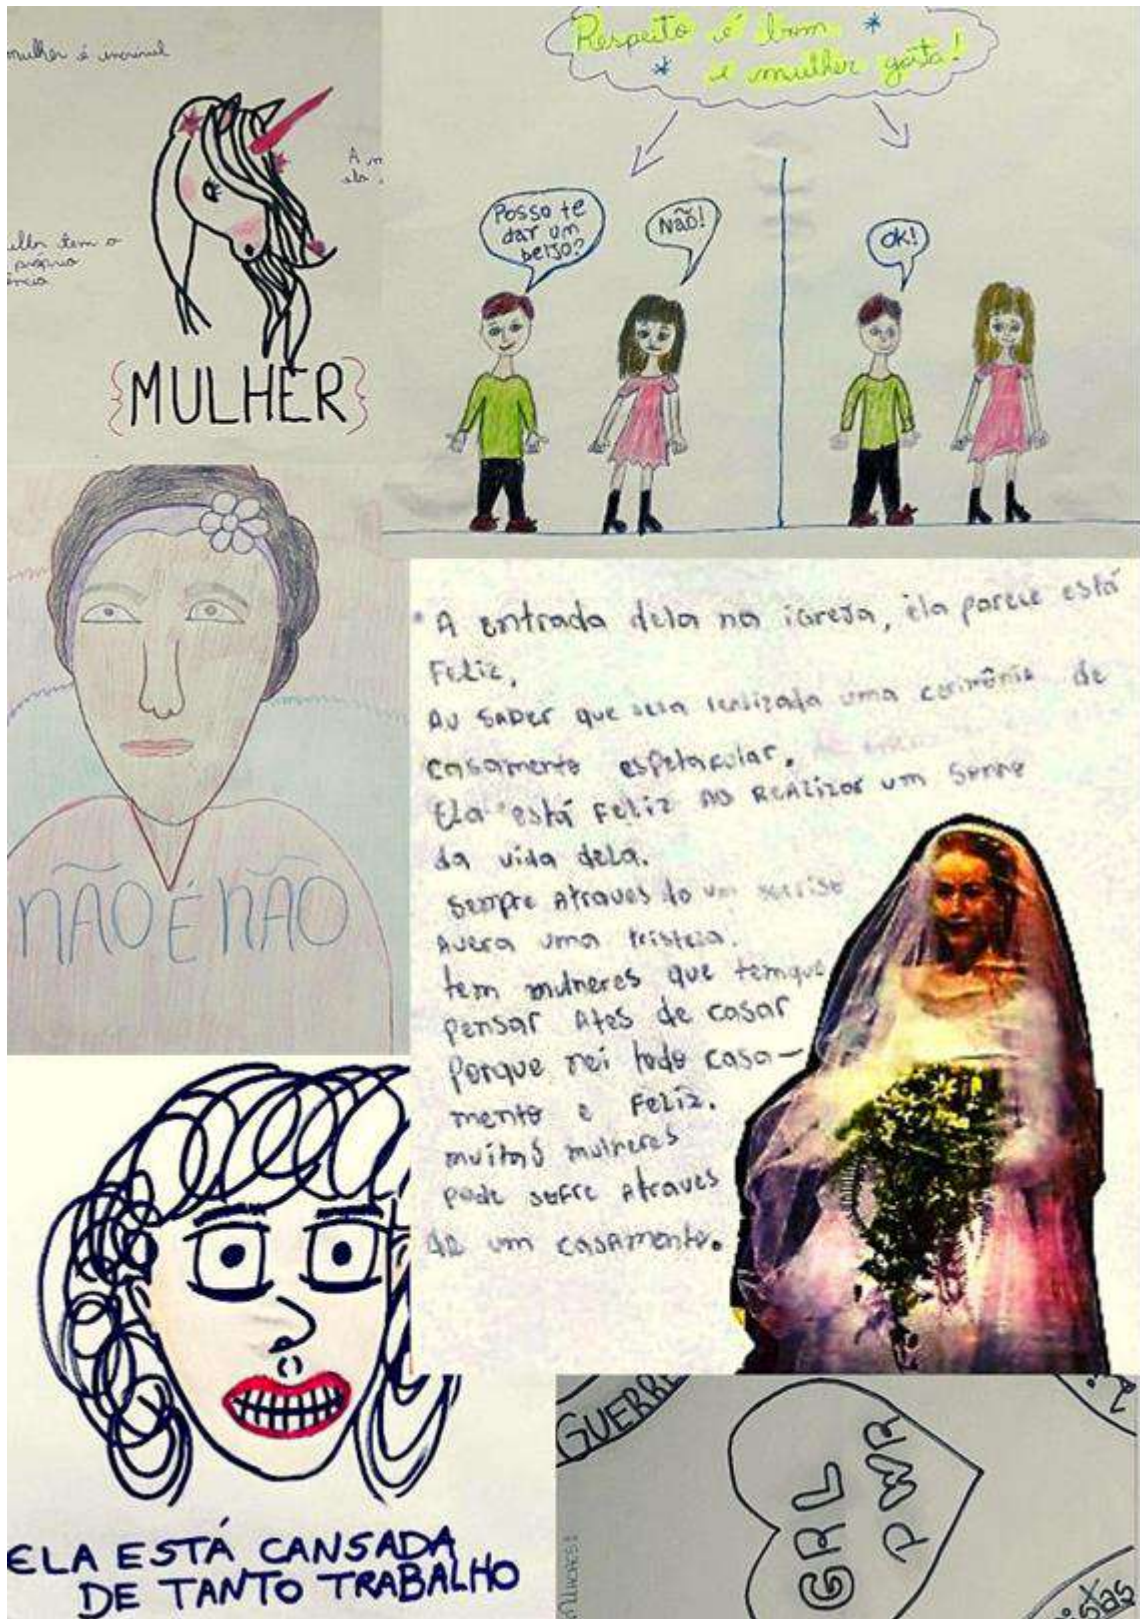 mulher é incrível
tem o
{MULHER}
Respeito é bom
e mulher gosta!
Posso te
dar um
beijo?
Não!
OK!
NÃO É NÃO
A entrada dela na igreja, ela parece está
Feliz,
Au saber que sera realizada uma cerimônia de
casamento espetacular.
Ela está Feliz ao realizar um sonho
da vida dela.
sempre atraves do um sorriso
avera uma tristeza.
tem mulheres que temque
pensar ates de casar
Porque nei todo casa-
mento e Feliz.
muitas mulheres
pode sofre atraves
de um casamento.
ELA ESTÁ CANSADA
DE TANTO TRABALHO
GUERRE
GRL
PWR
istas